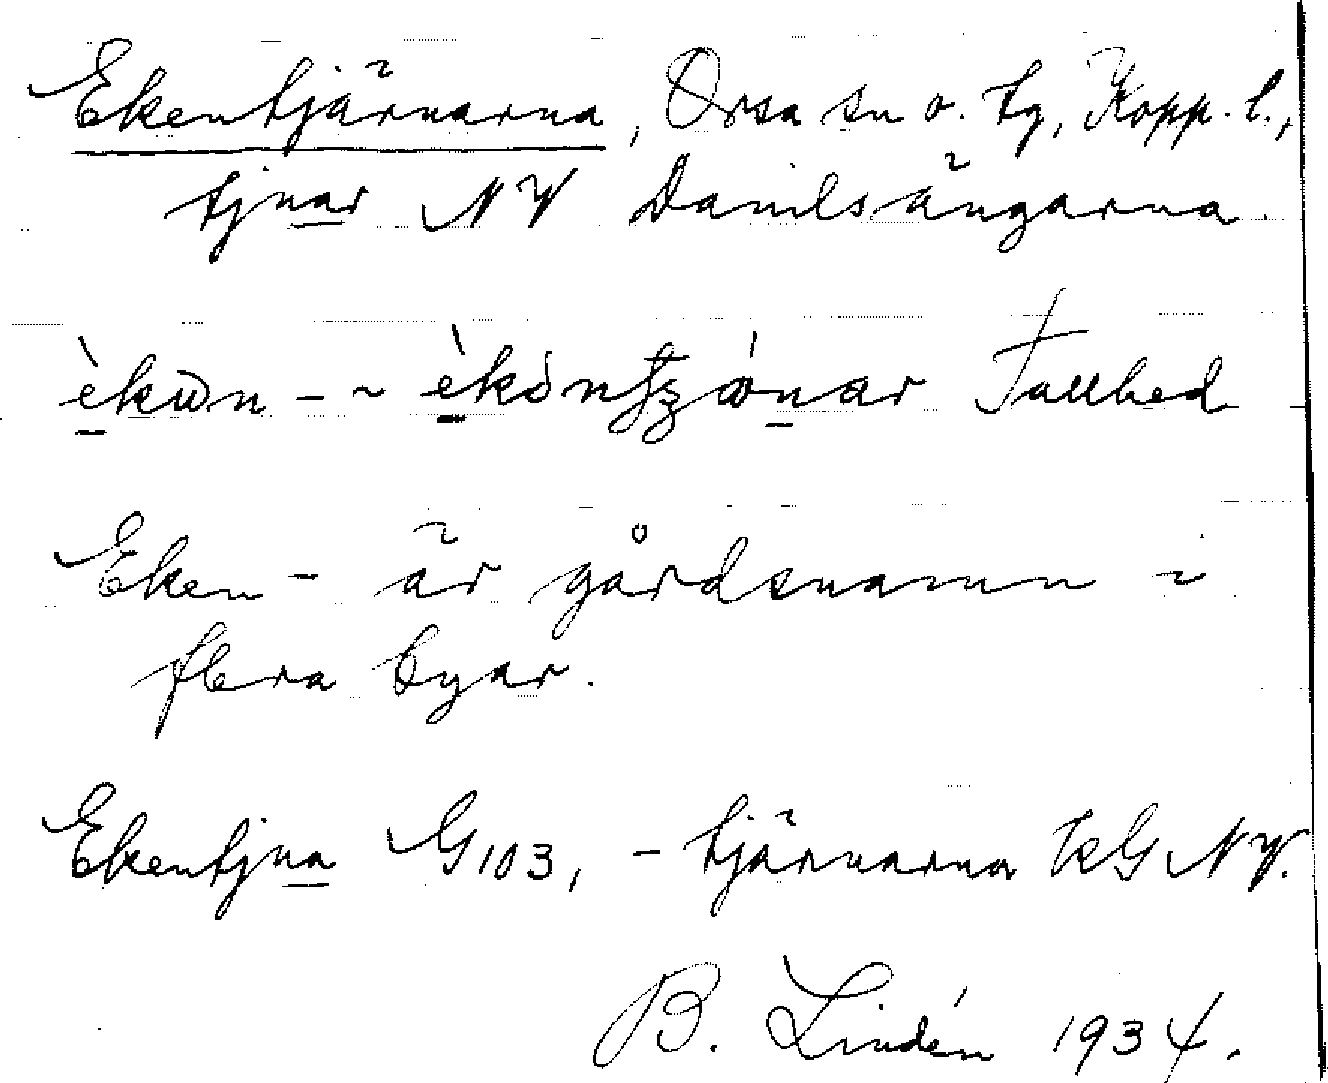 Ekentjärnarna, Orsa sn o. tg, Kopp. l.,
tjnar NV Danilsängarna.
Tallhed
Eken- är gårdsnamn i
flera byar.
Ekentjna G 103, -tjärnarna KG NV.
B. Lindén 1934.